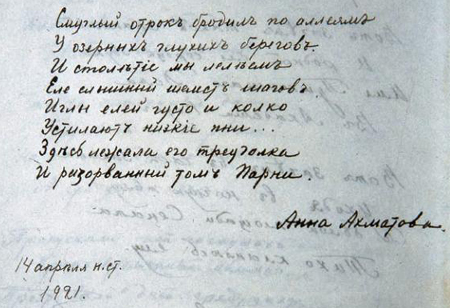 Смуглый отрокъ бродилъ по аллеямъ
У озерныхъ глухихъ береговъ
И столѣтіе мы лелѣемъ
Еле слышный шелестъ шаговъ.
Иглы елей густо и колко
Устилаютъ низкіе пни...
Здѣсь лежала его треуголка
И разорванный томъ Парни.
Анна Ахматова.
14 апрѣля н.ст.
1921.